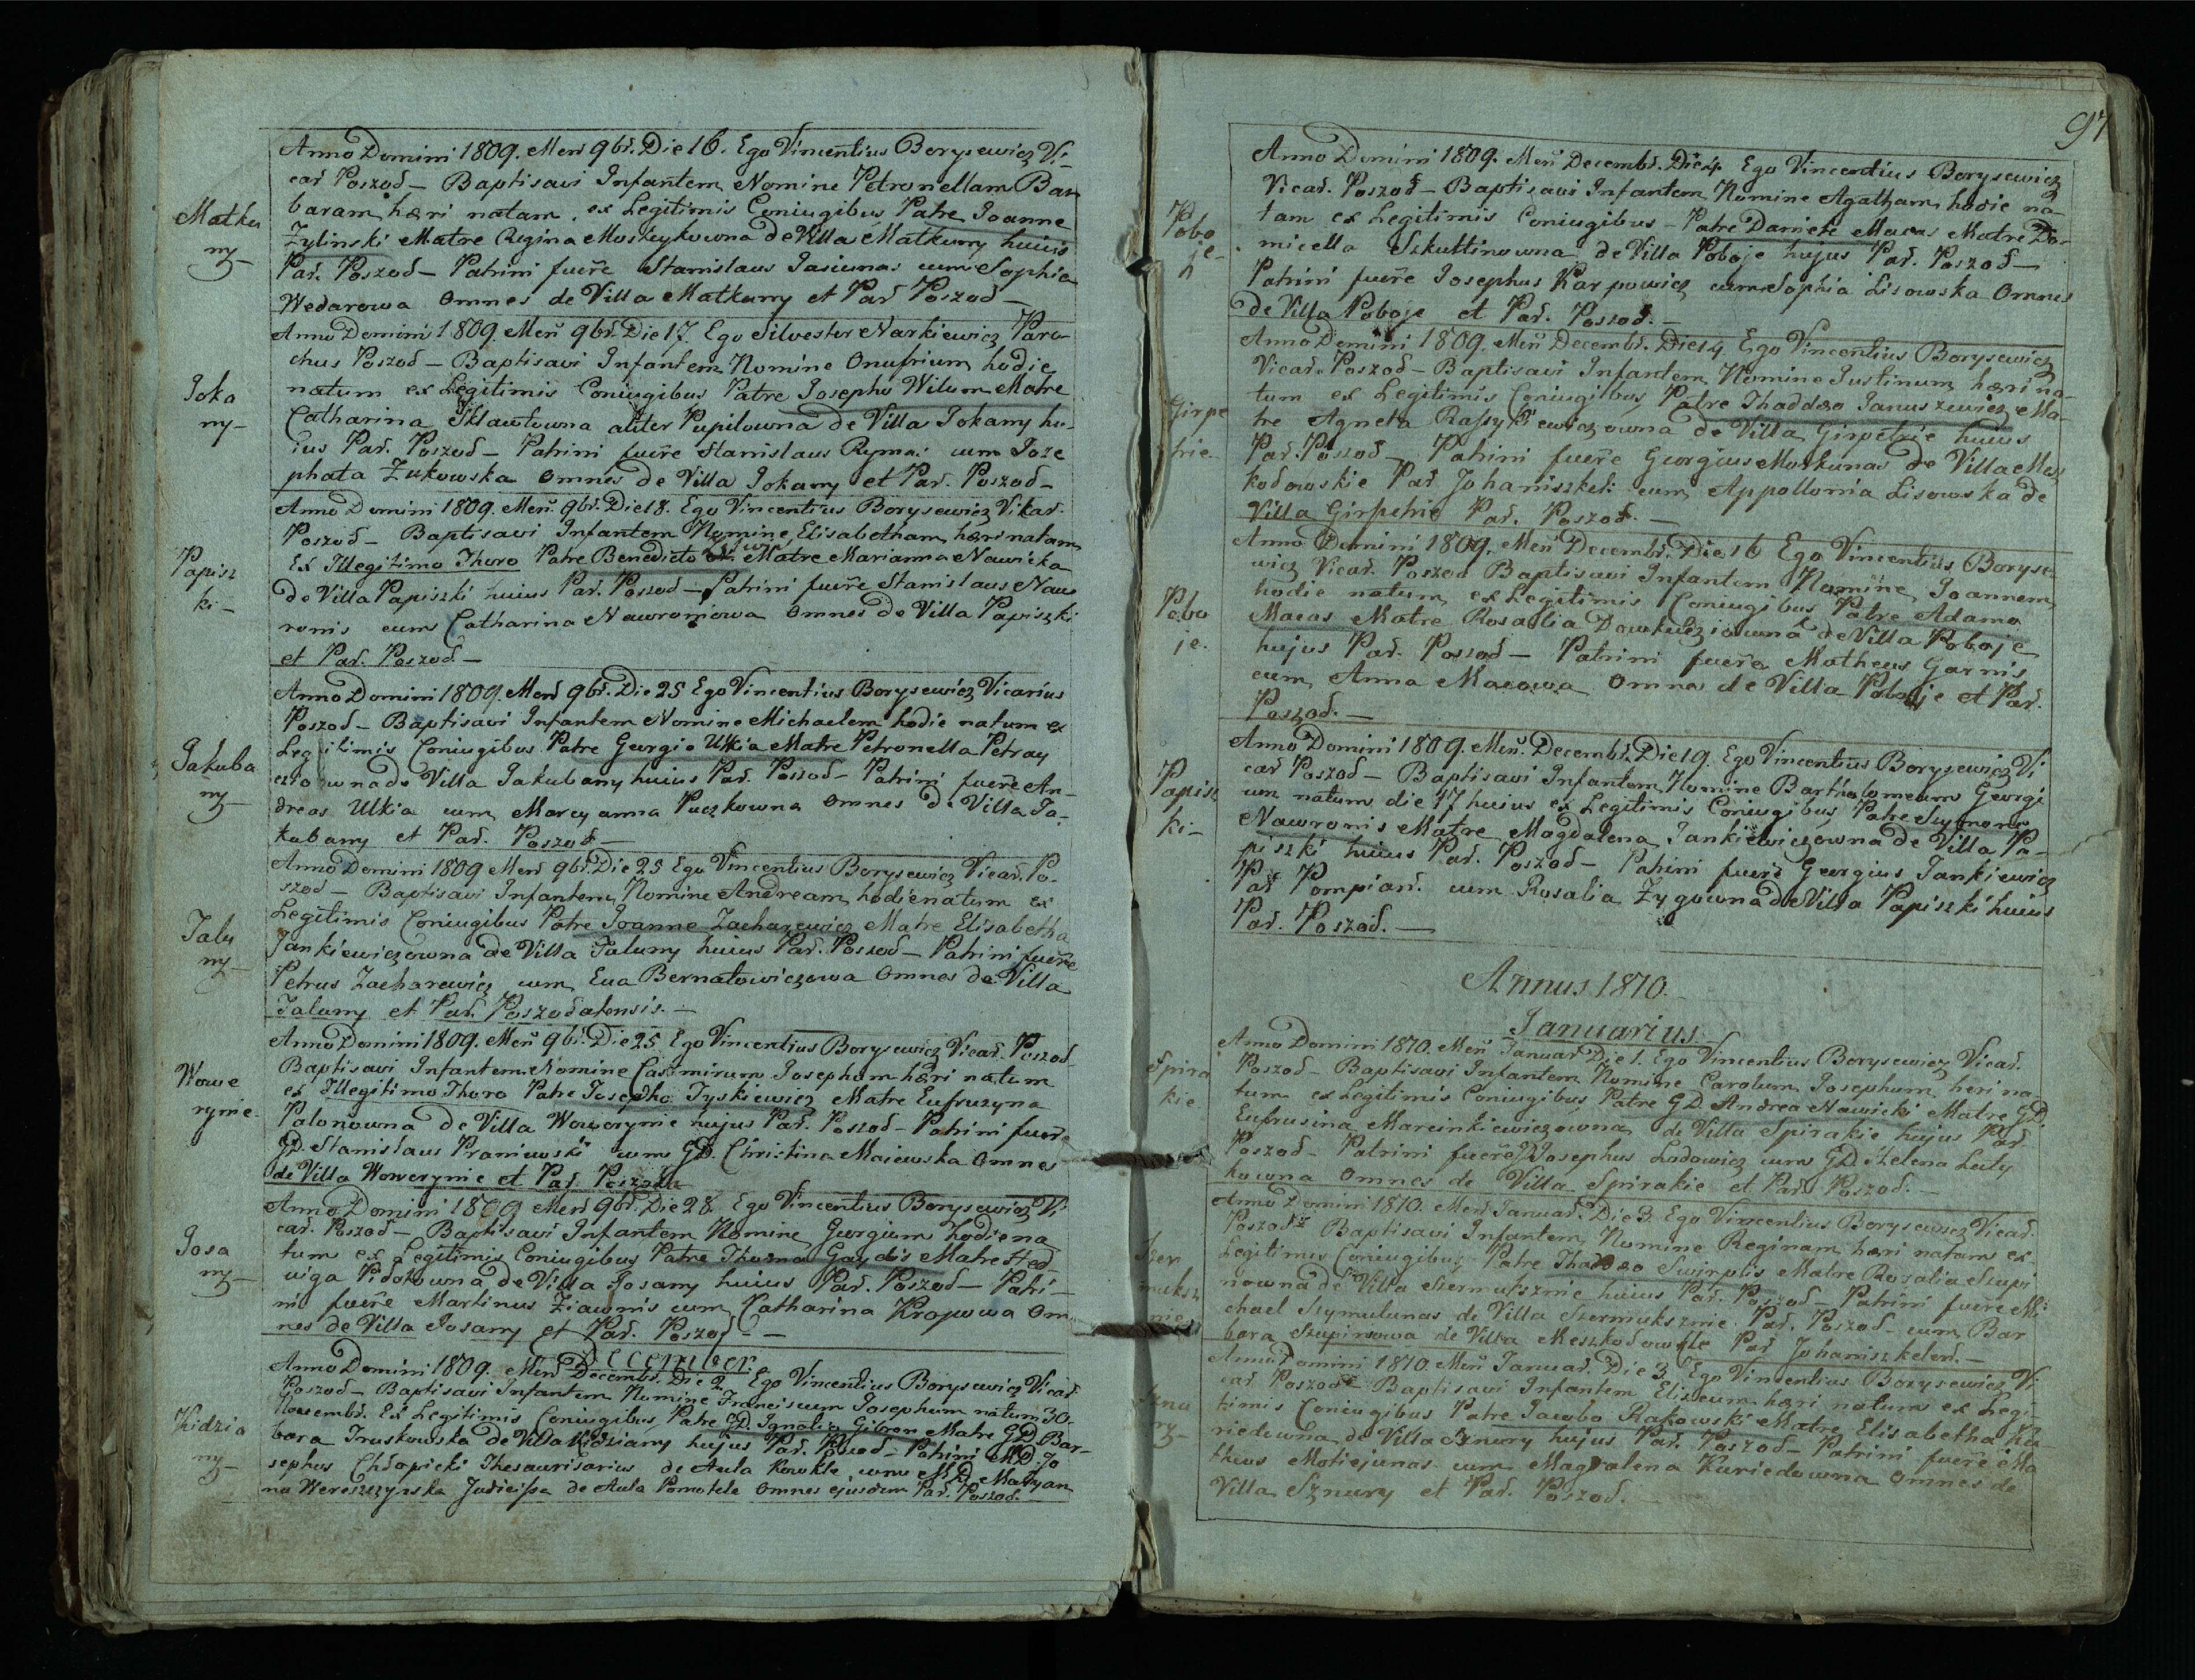 Anno Domini 1809. Mens 9br. Die 16. Ego Vincentius Borysewicz Vi-
car Poszod – Baptisavi Infantem Nomine Petronellam Bar
Matku
ny –
baram, hæri natam, ex Legitimis Coniugibus Patre Joanne
Zylinski Matre Regina Moszeykowna de Villa Matkuny huius
Par. Poszod – Patrini fuere Stanislaus Jasiunas cum Sophia
Wedarowa Omnes de Villa Matkuny et Par Poszod –
Anno Domini 1809. Mens 9br. Die 17. Ego Silvester Narkiewicz Paro-
chus Poszod – Baptisavi Infantem Nomine Onufrium hodie
Joka
ny –
natum ex Legitimis Coniugibus Patre Josepho Witum Matre
Catharina Sklawtowna aliter Pupilowna de Villa Jokany hu-
ius Par. Poszod – Patrini fuere Stanislaus Ryma: cum Joze
phata Zukowska Omnes de Villa Jokany et Par. Poszod –
Anno Domini 1809. Mens. 9br. Die 18. Ego Vincentius Borysewicz Vikar.
Poszod – Baptisavi Infantem Nomine Elisabetham, hæri natam
Papisz
ki –
Ex Illegitimo Thoro Patre Benedicto Matre Marianna Nawicka
de Villa Papiszki huius Par. Poszod – Patrini fuere Stanislaus Naw
ronis cum Catharina Nawroniowa Omnes de Villa Papiszki
et Par. Poszod. –
Anno Domini 1809. Mens 9br. Die 25 Ego Vincentius Borysewicz Vicarius
Poszod – Baptisavi Infantem Nomine Michaelem hodie natum ex
Jakuba
ny –
Legitimis Coniugibus Patre Georgio Utkia Matre Petronella Petray
ciowna de Villa Jakubany huius Par. Poszod – Patrini fuere An-
dreas Utkia cum Marcyanna Puczkowna Omnes de Villa Ja-
kubany et Par. Poszod –
Anno Domini 1809 Mens 9br. Die 25 Ego Vincentius Borysewicz Vicar. Po-
szod – Baptisavi Infantem Nomine Andream hodie natum ex
Jalu
ny –
Legitimis Coniugibus Patre Joanne Zacharewicz Matre Elisabetha
Jankiewiczowna de Villa Jaluny huius Par. Poszod – Patrini fuere
Petrus Zacharewicz cum Eva Bernatowiczowa Omnes de Villa
Jaluny et Par. Poszodatensis. –
Anno Domini 1809. Mens 9br. Die 25 Ego Vincentius Borysewicz Vicar. Poszod
Baptisavi Infantem Nomine Casimirum Josephum hæri natum
Wowe
rynie
ex Illegitimo Thoro Patre Josepho Tyskiewicz Matre Eufruzyna
Palonowna de Villa Wowerynie hujus Par. Poszod – Patrini fuere
GD. Stanislaus Praniewski cum GD. Christina Majewska Omnes
de Villa Wowerynie et Par. Poszod
Anno Domini 1809 Mens 9br. Die 28. Ego Vincentius Borysewicz Vi
car. Poszod – Baptisavi Infantem Nomine Georgium hodie na
Josa
ny –
tum ex Legitimis Coniugibus Patre Thoma Gaydis Matre Hed-
viga Pidokowna de Villa Josany huius Par. Poszod – Patri-
ni fuere Martinus Ziawnis cum Catharina Krajowa Om
nes de Villa Josany et Par. Poszod – –
December
Anno Domini 1809. Mens Decembr. Die 2 Ego Vincentius Borysewicz Vicar
Poszod – Baptisavi Infantem Nomine Franciscum Josephum natum 30.
Kidzia
ny –
Novembr. Ex Legitimis Coniugibus Patre GD. Ignatio Gibron Matre GD Bar-
bara Truskowska de Villa Kidziany hujus Par. Poszod – Patrini MD. Jo
sephus Chłopicki Thesaurisarius de Aula Kowkle, cum MD. Maryan
na Wereszczynska Judicissa de Aula Pomotele Omnes ejusdem Par. Poszod. –
97
Anno Domini 1809. Mens Decembr. Die 4. Ego Vincentius Borysewicz
Vicar. Poszod – Baptisavi Infantem Nomine Agatham hodie na-
Pobo
je –
tam ex Legitimis Coniugibus – Patre Daniele Macas Matre Do-
micella Szkuttinowna de Villa Poboje hujus Par. Poszod –
Patrini fuere Josephus Karpowicz cum Sophia Lisowska Omnes
de Villa Poboje et Par. Poszod. –
Anno Domini 1809. Mens Decembr. Die 14 Ego Vincentius Borysewicz
Vicar. Poszod – Baptisavi Infantem Nomine Justinum hæri na-
Girpe
trie –
tum ex Legitimis Coniugibus Patre Thaddæo Januszewicz Ma-
tre Agneta Rassykiewiczowna de Villa Girpetrie huius
Par. Poszod – Patrini fuere Georgius Motkunas de Villa Mes
kodowskie Par Johaniszkel: cum Appollonia Lisowska de
Villa Girpetrie Par. Poszod. –
Anno Domini 1809. Mens Decembr. Die 16 Ego Vincentius Boryse-
wicz Vicar. Poszod Baptisavi Infantem Nomine Joannem
Pobo
je.
hodie natum ex Legitimis Coniugibus Patre Adamo
Macas Matre Rosalia Dowkulziowna de Villa Poboje
hujus Par. Poszod – Patrini fuere Matheus Garnis
cum Anna Macowa Omnes de Villa Poboje et Par.
Poszod. –
Anno Domini 1809. Mens. Decembr. Die 19. Ego Vincentius Borysewicz Vi
car Poszod – Baptisavi Infantem Nomine Bartholomeum Georgi
Papisz
ki –
um natum die 17 huius ex Legitimis Coniugibus Patre Szymone
Nawronis Matre Magdalena Jankiewiczowna de Villa Pa-
piszki huius Par. Poszod – Patrini fuere Georgius Jankiewicz
Par Pompian. cum Rosalia Zygowna de Villa Papiszki huius
Par. Poszod. –
Annus 1810.
Januarius.
Anno Domini 1810. Mens Januar. Die 1. Ego Vincentius Borysewicz Vicar.
Spira
kie
Poszod – Baptisavi Infantem Nomine Carolum Josephum heri na
tum ex Legitimis Coniugibus Patre GD. Andrea Nawicki Matre GD.
Eufrusina Marcinkiewiczowna de Villa Spirakie hujus Par
Poszod – Patrini fuere Josephus Ladowicz cum GD. Helena Luty
kowna Omnes de Villa Spirakie et Par. Poszod. –
Anno Domini 1810. Mens Januar. Die 3. Ego Vincentius Borysewicz Vicar.
Poszod – Baptisavi Infantem Nomine Reginam hæri natam ex
Szer
muksz
nie
Legitimis Coniugibus Patre Thaddæo Swirplis Matre Rozalia Szupi
nowna de Villa Szermuksznie huius Par. Poszod – Patrini fuere Mi
chael Szymulunas de Villa Szermuksznie Par. Poszod – cum Bar
bara Szupinowa de Villa Meszkodowskie Par Johaniszkelen. –
Anno Domini 1810. Mens Januar. Die 3. Ego Vincentius Borysewicz Vi
car. Poszod – Baptisavi Infantem Eliseum hæri natum ex Legi-
Sznu
ry –
timis Coniugibus Patre Jacobo Rakowski Matre Elisabetha Ku-
riedowna de Villa Sznury hujus Par. Poszod – Patrini fuere Ma
theus Motiejunas cum Magdalena Kuriedowna Omnes de
Villa Sznury et Par. Poszod.